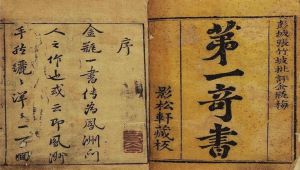 彭城張竹坡批評金瓶梅
第一奇書
影松軒藏板
序
金瓶一書傳為鳳洲門
人之作也或云即鳳洲
手然纚纚洋洋一百回